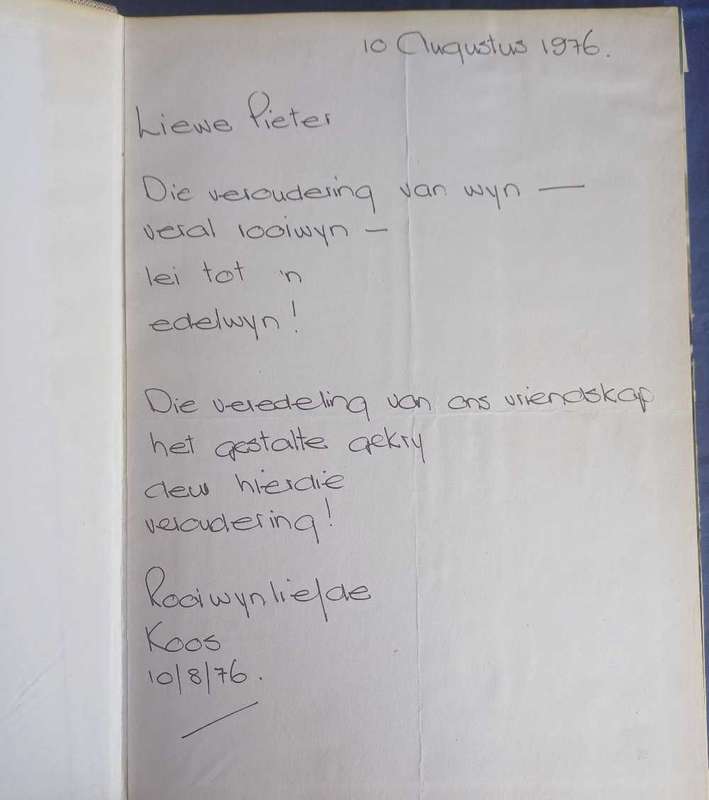 10 Augustus 1976.
Liewe Pieter
Die veroudering van wyn —
veral rooiwyn —
lei tot 'n
edelwyn!
Die veredeling van ons vriendskap
het gestalte gekry
deur hierdie
veroudering!
Rooiwynliefde
Koos
10/8/76.